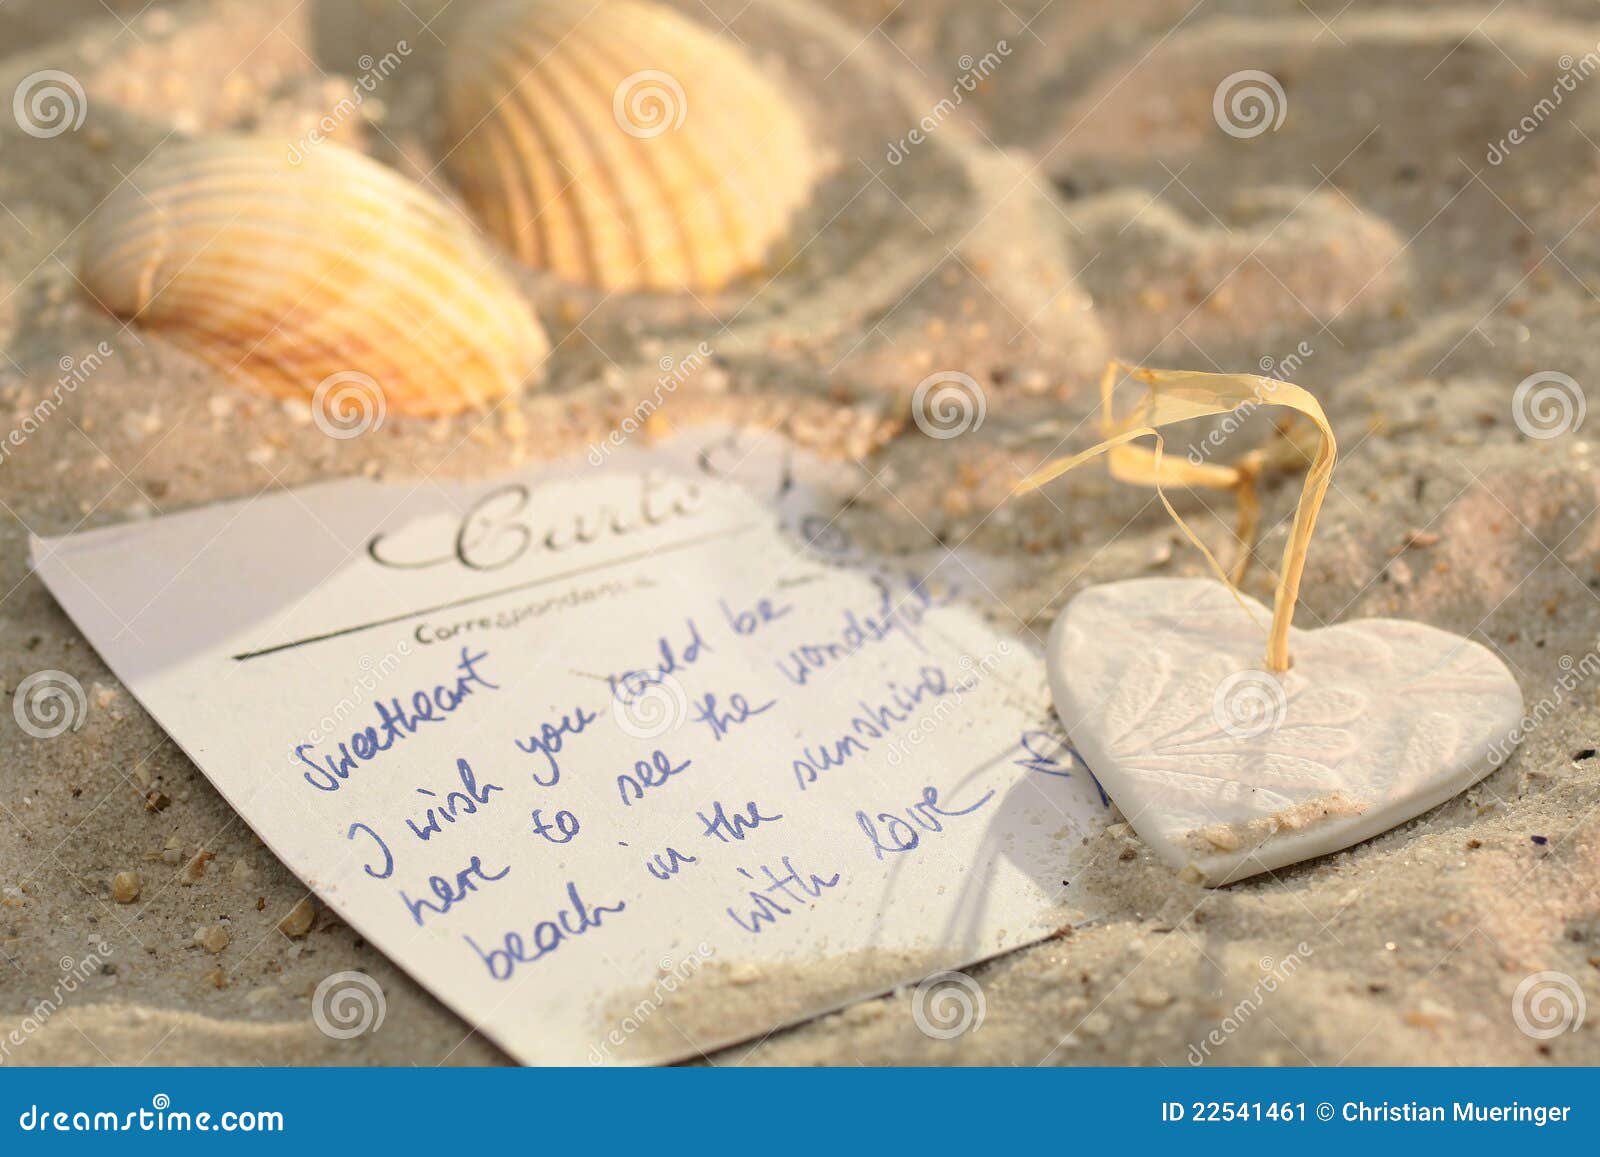 Correspondance
Sweetheart
I wish you could be
here to see the wonderful
beach in the sunshine
with love
dreamstime.com
ID 22541461 © Christian Mueringer